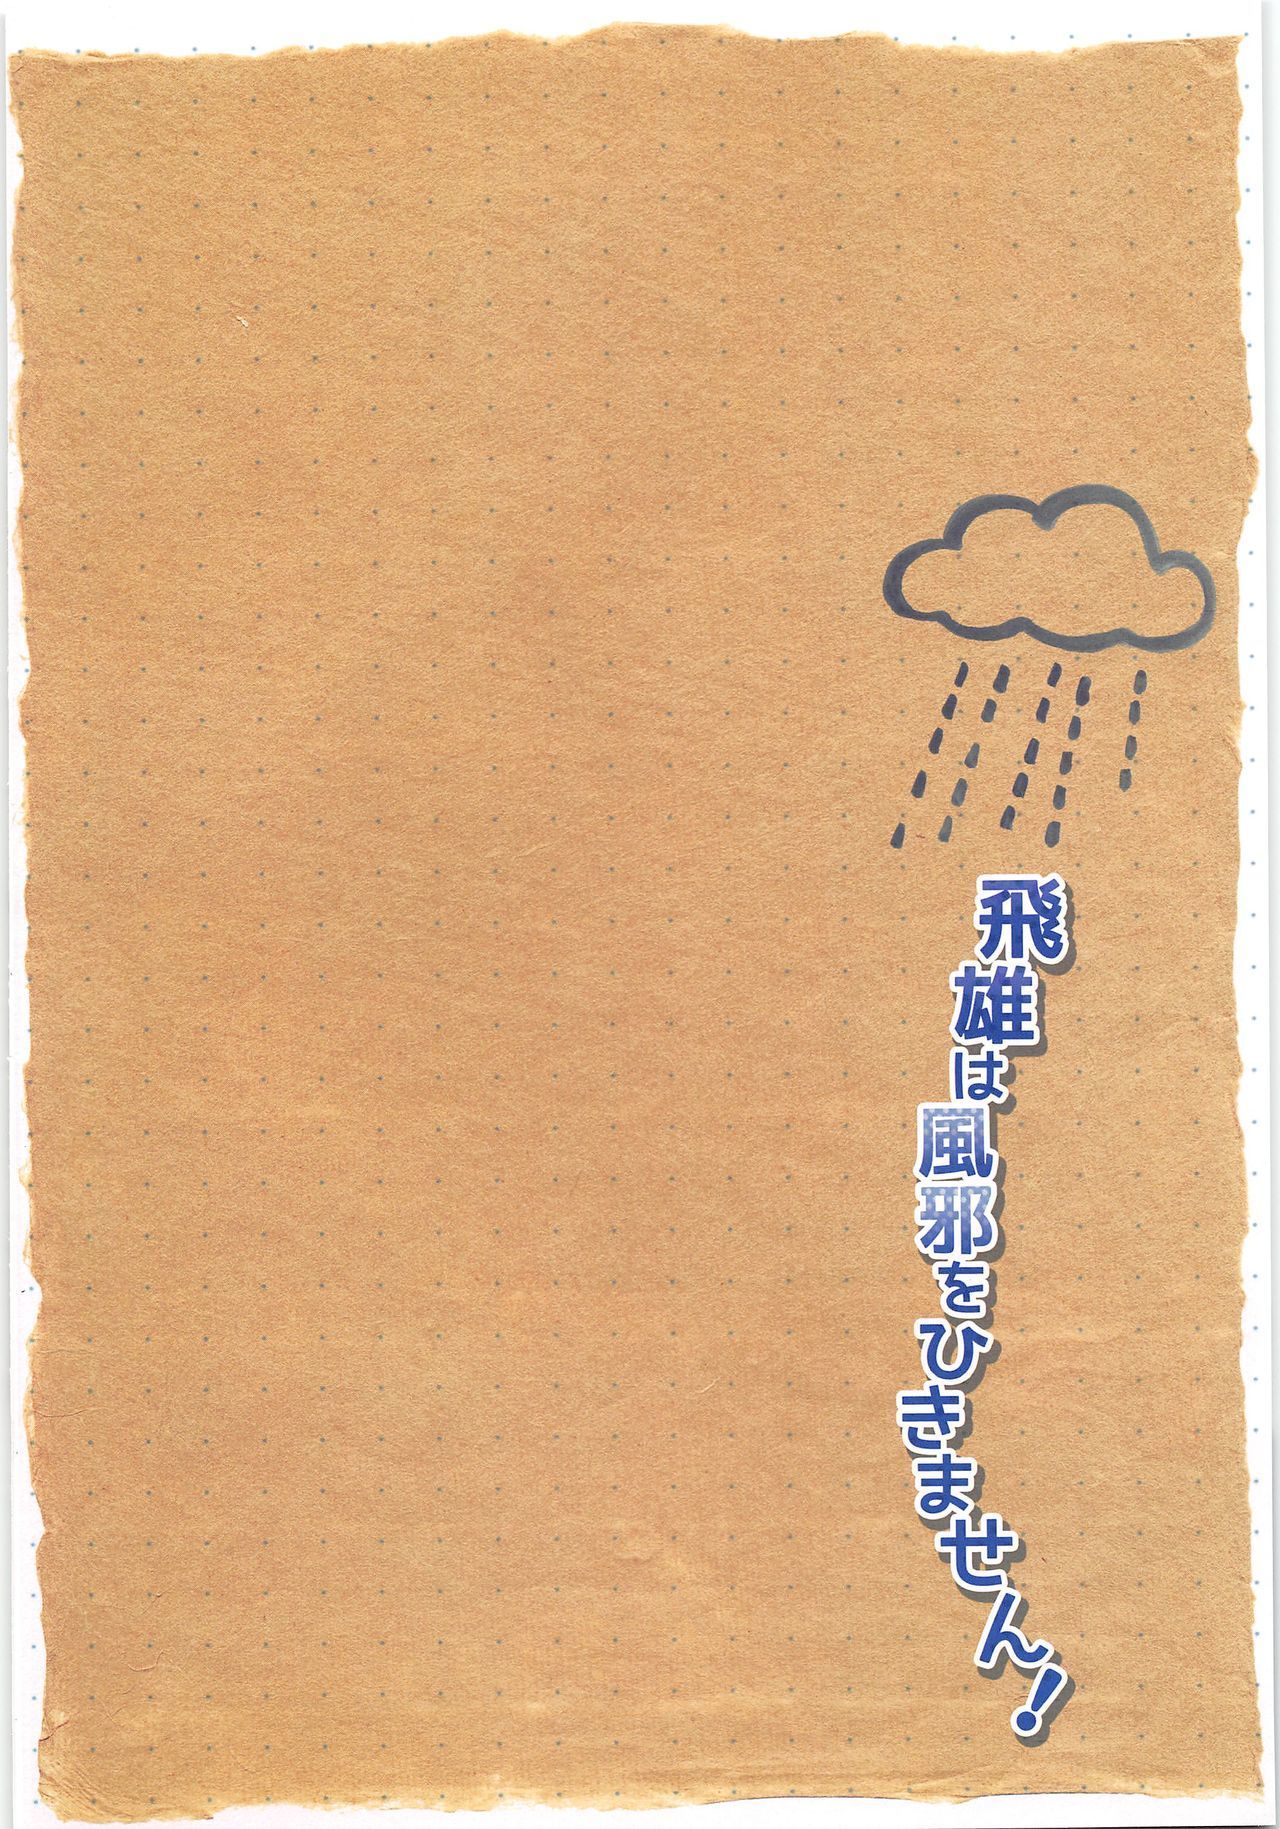 飛雄は風邪をひきません！